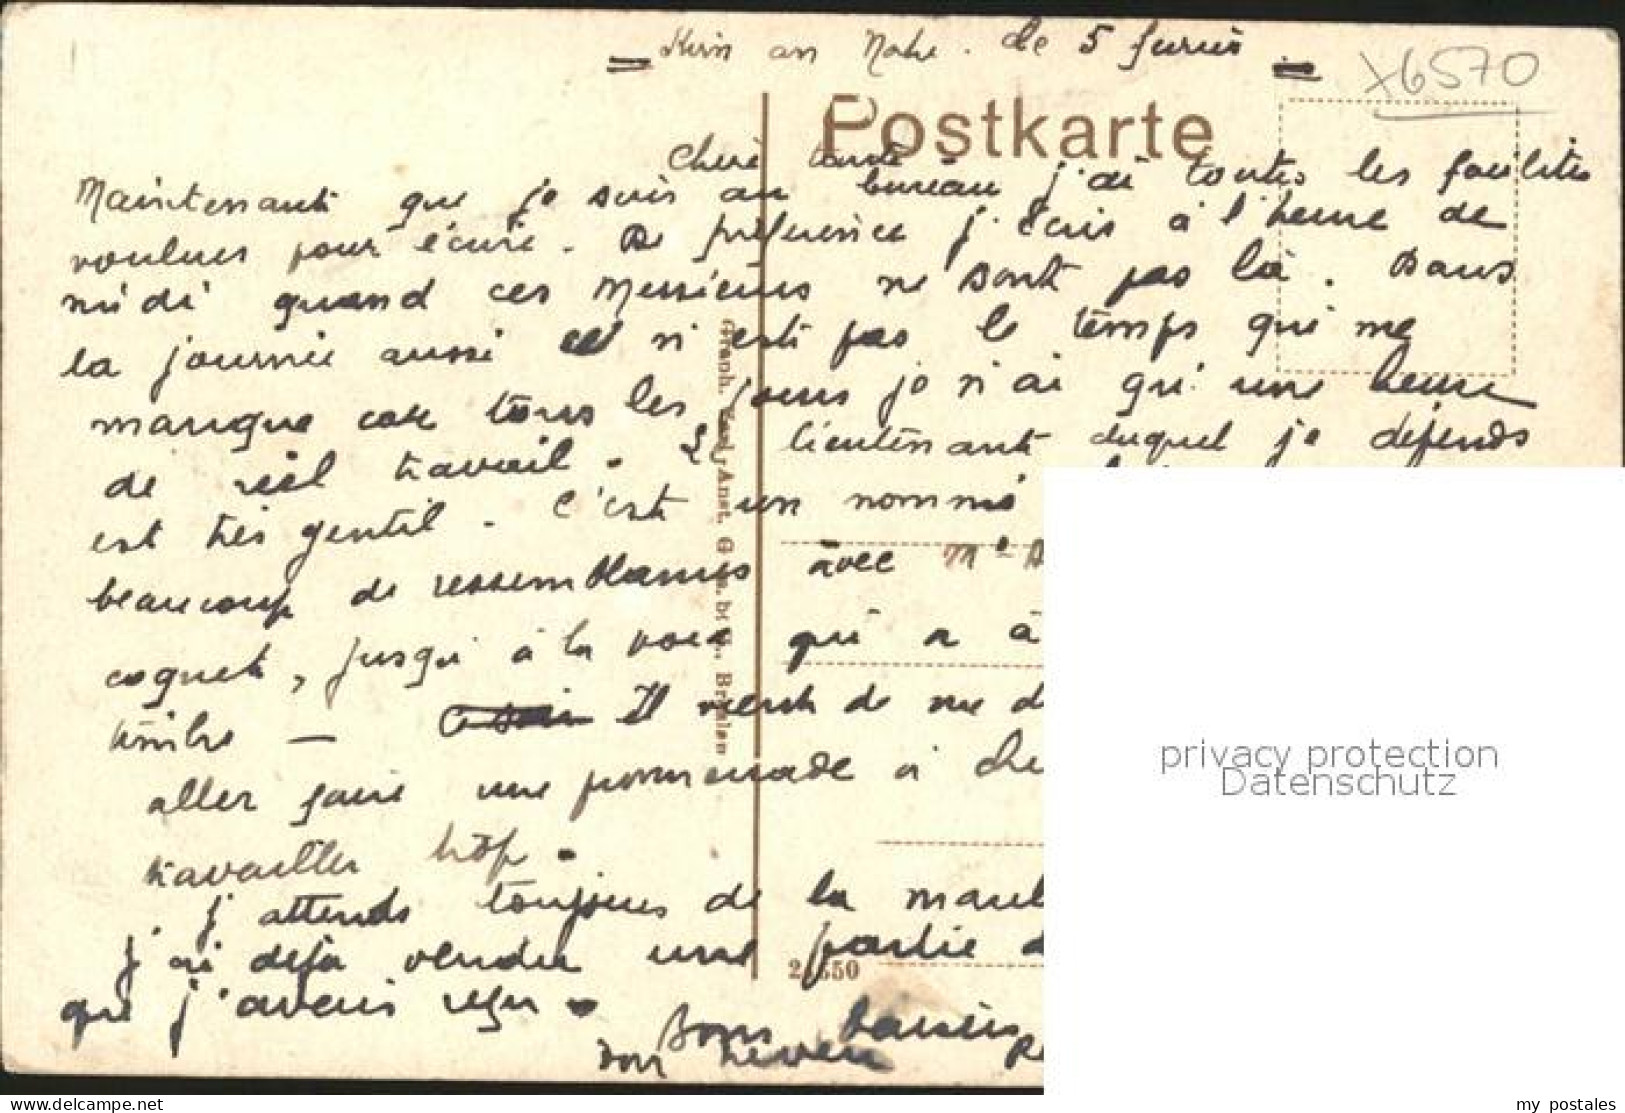 Kirn an Nahe. le 5 furier
X6570
Postkarte
Chère tante
Maintenant que je suis au bureau j'ai toutes les facilités
voulues pour écrire. De préférence j'écris à l'heure de
midi quand ces Messieurs ne sont pas là. Dans
la journée aussi ce n'est pas le temps qui me
manque car tous les jours je n'ai qu'une heure
de réel travail. Le lieutenant duquel je dépends
est très gentil. C'est un nommé
beaucoup de ressemblances avec Mr D
coquet, jusqu'à la voix qui a à
timbre — Il vient de me d
aller faire une promenade à che
travailler trop.
j'attends toujours de la
j'ai déjà vendu une partie d
que j'avais reçu.
Bons baisers
Ton neveu
Graph. Kunst-Anst. G. m. b. H., Breslau
privacy protection
Datenschutz
www.delcampe.net
my_postales